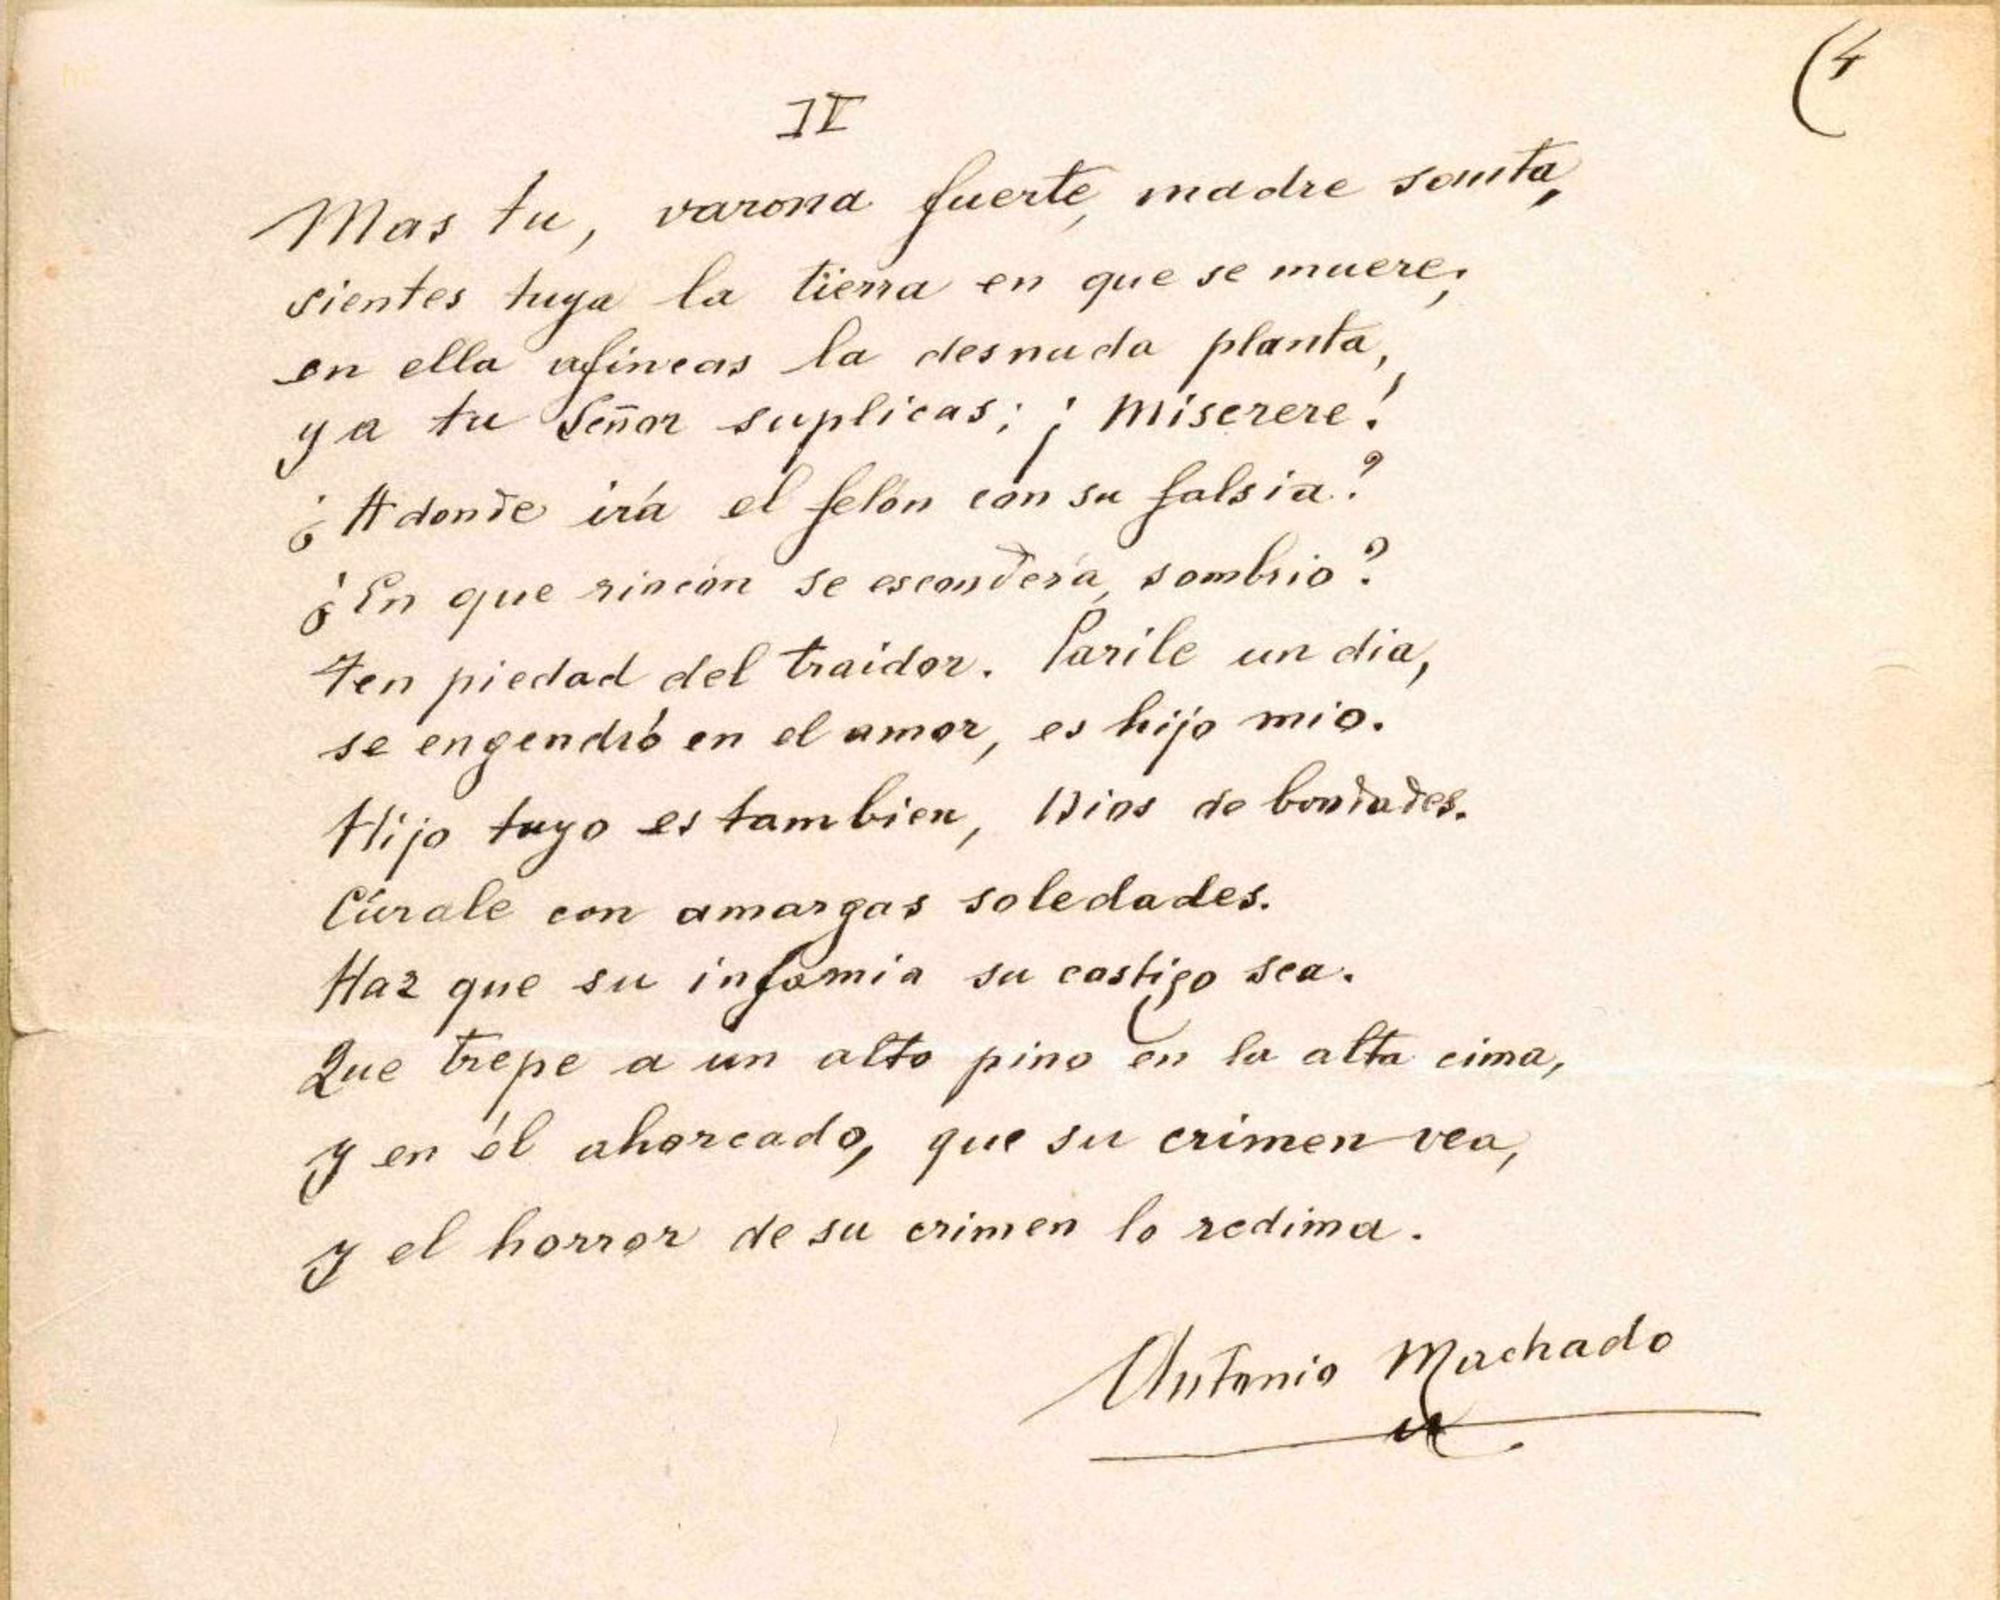 (4
IV
Mas tu, varona fuerte, madre santa,
sientes tuya la tierra en que se muere;
en ella afincas la desnuda planta,
y a tu Señor suplicas: ¡Miserere!
¿Adonde irá el felón con su falsia?
¿En que rincón se esconderá, sombrio?
Ten piedad del traidor. Parile un dia,
se engendró en el amor, es hijo mio.
Hijo tuyo es tambien, Dios de bondades.
Cúrale con amargas soledades.
Haz que su infamia su castigo sea.
Que trepe a un alto pino en la alta cima,
y en él ahorcado, que su crimen vea,
y el horror de su crimen lo redima.
Antonio Machado